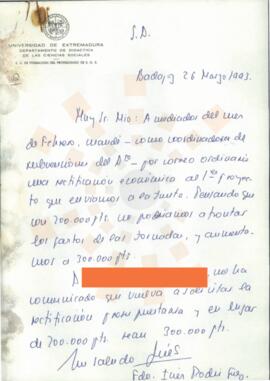 S.D.
UNIVERSIDAD DE EXTREMADURA
DEPARTAMENTO DE DIDACTICA
DE LAS CIENCIAS SOCIALES
E. U. DE FORMACION DEL PROFESORADO DE E. G. B.
Badajoz 26 Marzo 1993.
Muy Sr. Mio: A mediados del mes
de Febrero, mandé - como coordinadora de
subvenciones del Dto - por correo ordinario
una rectificación económica al 1er proyec
to que enviamos a la Junta. Pensando que
con 200.000 pts. no podíamos afrontar
los gastos de las Jornadas, y aumenta-
mos a 300.000 pts.
no ha
comunicado que vuelva a solicitar la
rectificación presupuestaria y en lugar
de 200.000 pts. sean 300.000 pts.
Un saludo
Fdo. Inés Rodríguez